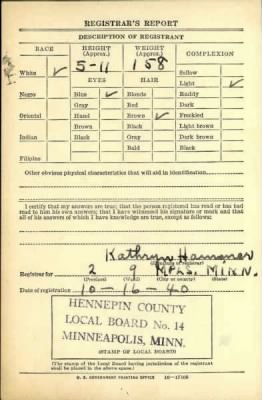 REGISTRAR'S REPORT
DESCRIPTION OF REGISTRANT
RACE HEIGHT (Approx.) WEIGHT (Approx.) COMPLEXION
5-11 158 Sallow
White ✓ EYES HAIR Light ✓
Negro Blue ✓ Blonde Ruddy
Gray Red Dark
Oriental Hazel Brown ✓ Freckled
Brown Black Light brown
Indian Black Gray Dark brown
Bald Black
Filipino
Other obvious physical characteristics that will aid in identification
I certify that my answers are true; that the person registered has read or has had
read to him his own answers; that I have witnessed his signature or mark and that
all of his answers of which I have knowledge are true, except as follows:
Kathryn
(Signature of registrar)
Registrar for 2 9 MPLS. MINN.
(Precinct) (Ward) (City or county) (State)
Date of registration 10-16-40
HENNEPIN COUNTY
LOCAL BOARD No. 14
MINNEAPOLIS, MINN.
(STAMP OF LOCAL BOARD)
(The stamp of the Local Board having jurisdiction of the registrant
shall be placed in the above space.)
U. S. GOVERNMENT PRINTING OFFICE